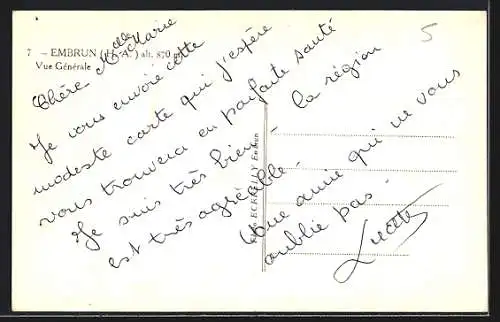 7 - EMBRUN (H.-A.) alt. 870 m.
Vue Générale
5
Chère Melle Marie
Je vous envoie cette
modeste carte qui j'espère
vous trouvera en parfaite santé
Je suis très bien - la région
est très agréable -
Une amie qui ne vous
oublie pas.
Lucette
Embrun